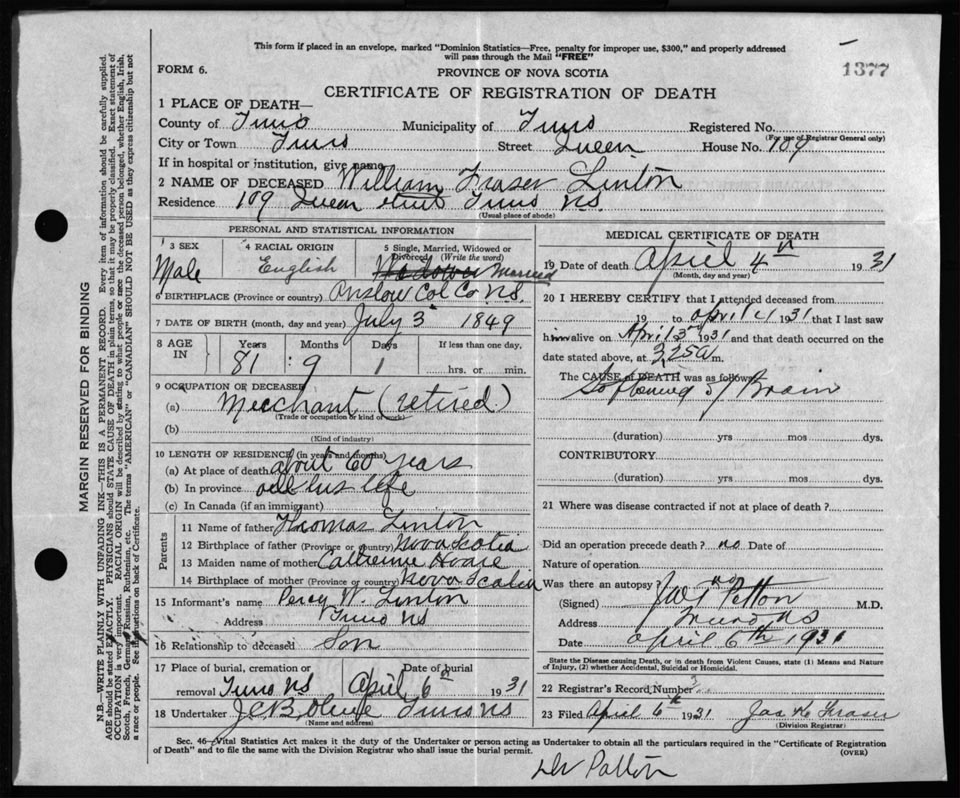 This form if placed in an envelope, marked "Dominion Statistics—Free, penalty for improper use, $300," and properly addressed
will pass through the Mail "FREE"
FORM 6.
PROVINCE OF NOVA SCOTIA
1377
CERTIFICATE OF REGISTRATION OF DEATH
1 PLACE OF DEATH—
County of Truro Municipality of Truro Registered No.
(For use of Registrar General only)
City or Town Truro Street Queen House No. 109
If in hospital or institution, give name
2 NAME OF DECEASED William Fraser Linton
Residence 109 Queen Street Truro N.S.
(Usual place of abode)
PERSONAL AND STATISTICAL INFORMATION
3 SEX
Male
4 RACIAL ORIGIN
English
5 Single, Married, Widowed or
Divorced (Write the word)
Widower Married
6 BIRTHPLACE (Province or country) Onslow Col Co N.S.
7 DATE OF BIRTH (month, day and year) July 3 1849
8 AGE IN
Years Months Days If less than one day,
81 9 1 hrs. or min.
9 OCCUPATION OF DECEASED
(a) Merchant (retired)
(Trade or occupation or kind of work)
(b)
(Kind of industry)
10 LENGTH OF RESIDENCE (in years and months)
(a) At place of death about 60 years
(b) In province all his life
(c) In Canada (if an immigrant)
Parents
11 Name of father Thomas Linton
12 Birthplace of father (Province or country) Nova Scotia
13 Maiden name of mother Catherine Hoare
14 Birthplace of mother (Province or country) Nova Scotia
15 Informant's name Percy W. Linton
Address Truro NS
16 Relationship to deceased Son
17 Place of burial, cremation or Date of burial
removal Truro NS April 6th 1931
18 Undertaker J.C.B. Truro NS
(Name and address)
MEDICAL CERTIFICATE OF DEATH
19 Date of death April 4th 1931
(Month, day and year)
20 I HEREBY CERTIFY that I attended deceased from
19 to April 4 1931 that I last saw
him alive on April 3rd 1931 and that death occurred on the
date stated above, at 3.25 a m.
The CAUSE of DEATH was as follows
Softening of Brain
(duration) yrs mos dys.
CONTRIBUTORY
(duration) yrs mos dys.
21 Where was disease contracted if not at place of death?
Did an operation precede death? no Date of
Nature of operation
Was there an autopsy? no
(Signed) Patton M.D.
Address Truro NS
Date April 6th 1931
State the Disease causing Death, or in death from Violent Causes, state (1) Means and Nature
of Injury, (2) whether Accidental, Suicidal or Homicidal.
22 Registrar's Record Number 3
23 Filed April 6th 1931 Jas H Fraser
(Division Registrar)
Sec. 46—Vital Statistics Act makes it the duty of the Undertaker or person acting as Undertaker to obtain all the particulars required in the "Certificate of Registration
of Death" and to file the same with the Division Registrar who shall issue the burial permit.
(OVER)
Dr Patton
MARGIN RESERVED FOR BINDING
N.B.—WRITE PLAINLY WITH UNFADING INK—THIS IS A PERMANENT RECORD. Every item of information should be carefully supplied.
AGE should be stated EXACTLY. PHYSICIANS should STATE CAUSE OF DEATH in plain terms, so that it may be properly classified. Exact statement of
OCCUPATION is very important. RACIAL ORIGIN will be described by stating to what people or race the deceased person belonged, whether English, Irish,
Scotch, French, German, Russian, Ruthenian, etc. The terms "AMERICAN" or "CANADIAN" SHOULD NOT BE USED as they express citizenship but not
a race or people. See instructions on back of Certificate.